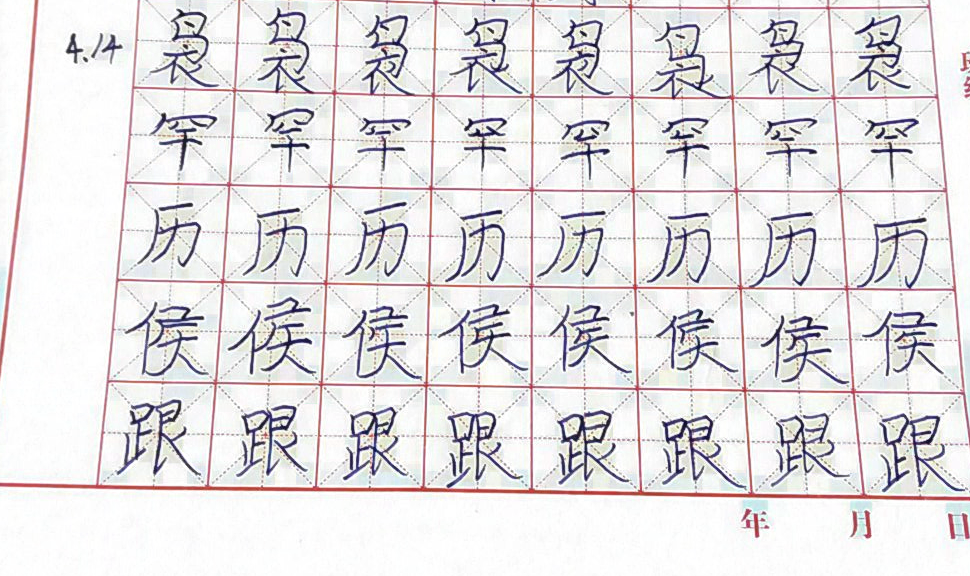 4.14 袅袅袅袅袅袅袅袅
罕罕罕罕罕罕罕罕
历历历历历历历历
侯侯侯侯侯侯侯侯
跟跟跟跟跟跟跟跟
年 月 日